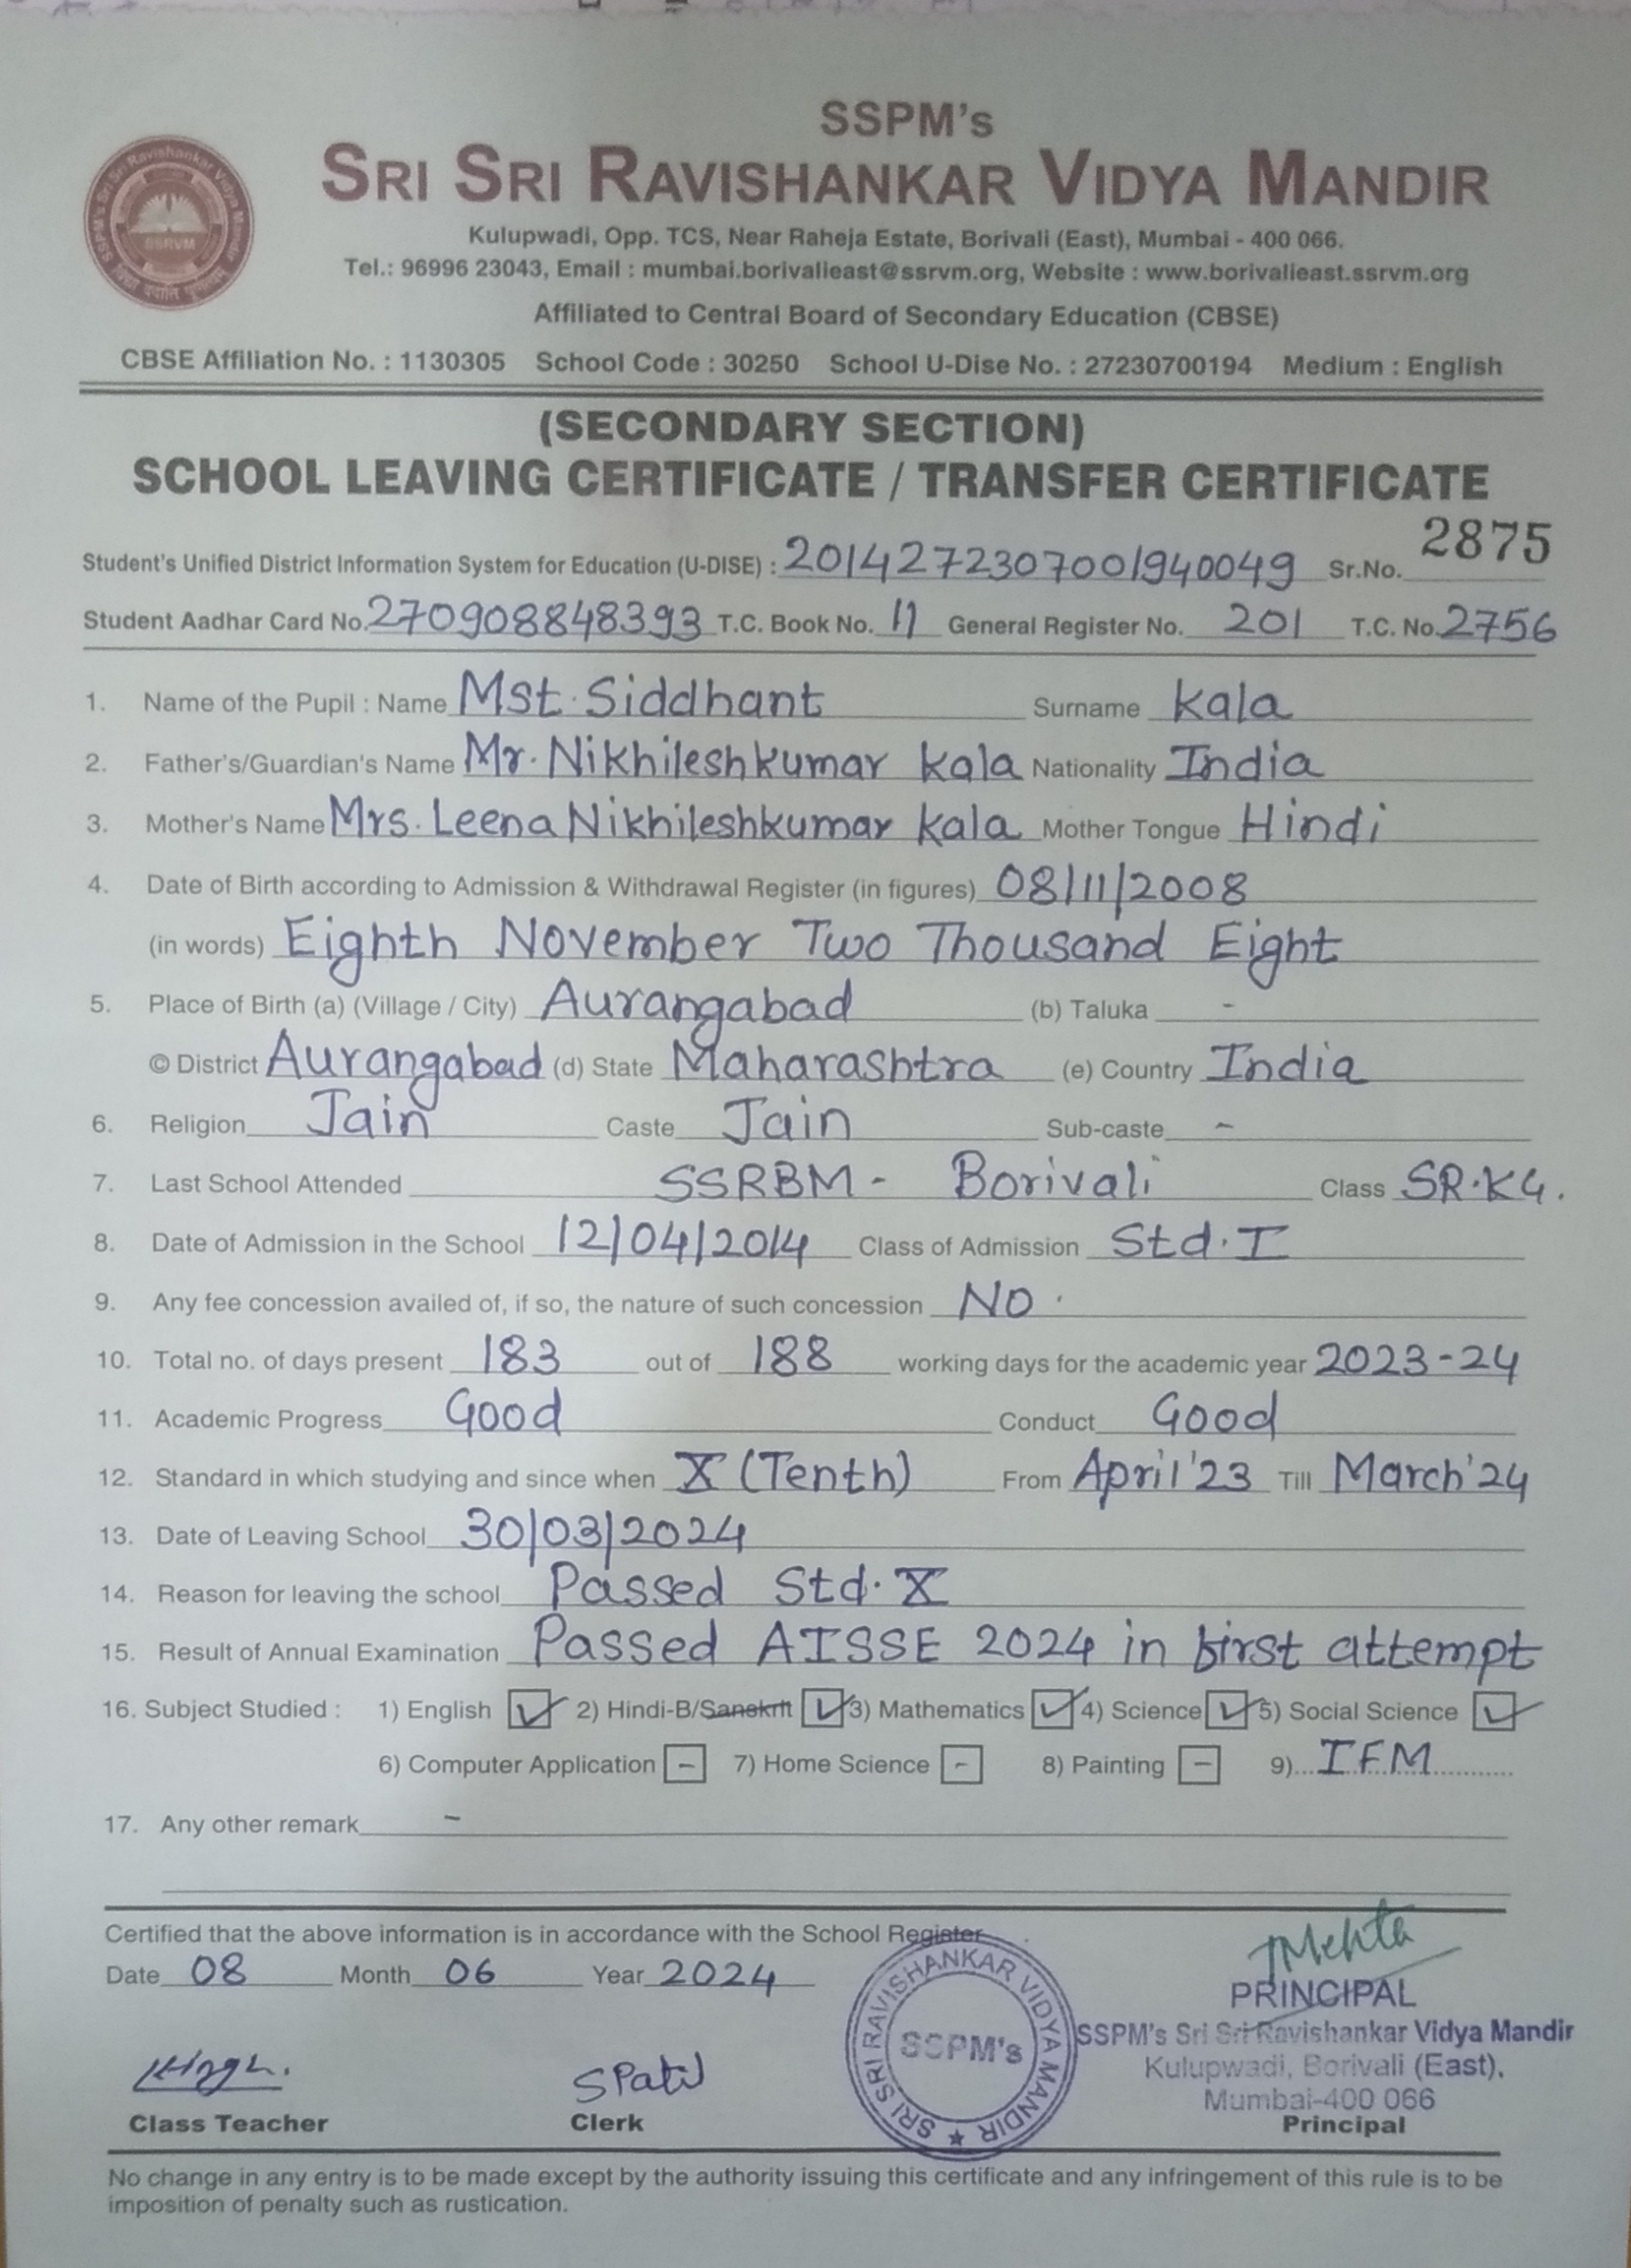 SSPM's
SRI SRI RAVISHANKAR VIDYA MANDIR
Kulupwadi, Opp. TCS, Near Raheja Estate, Borivali (East), Mumbai - 400 066.
Tel.: 96996 23043, Email : mumbai.borivalieast@ssrvm.org, Website : www.borivalieast.ssrvm.org
Affiliated to Central Board of Secondary Education (CBSE)
CBSE Affiliation No. : 1130305 School Code : 30250 School U-Dise No. : 27230700194 Medium : English
(SECONDARY SECTION)
SCHOOL LEAVING CERTIFICATE / TRANSFER CERTIFICATE
Student's Unified District Information System for Education (U-DISE) : 2014272307001940049 Sr.No. 2875
Student Aadhar Card No. 270908848393 T.C. Book No. 11 General Register No. 201 T.C. No. 2756
1. Name of the Pupil : Name Mst. Siddhant Surname Kala
2. Father's/Guardian's Name Mr. Nikhileshkumar Kala Nationality India
3. Mother's Name Mrs. Leena Nikhileshkumar Kala Mother Tongue Hindi
4. Date of Birth according to Admission & Withdrawal Register (in figures) 08/11/2008
(in words) Eighth November Two Thousand Eight
5. Place of Birth (a) (Village / City) Aurangabad (b) Taluka -
© District Aurangabad (d) State Maharashtra (e) Country India
6. Religion Jain Caste Jain Sub-caste -
7. Last School Attended SSRBM - Borivali Class SR.KG.
8. Date of Admission in the School 12/04/2014 Class of Admission Std. I
9. Any fee concession availed of, if so, the nature of such concession NO.
10. Total no. of days present 183 out of 188 working days for the academic year 2023-24
11. Academic Progress Good Conduct Good
12. Standard in which studying and since when X (Tenth) From April'23 Till March'24
13. Date of Leaving School 30/03/2024
14. Reason for leaving the school Passed Std. X
15. Result of Annual Examination Passed AISSE 2024 in first attempt
16. Subject Studied : 1) English ☑ 2) Hindi-B/Sanskrit ☑ 3) Mathematics ☑ 4) Science ☑ 5) Social Science ☑
6) Computer Application - 7) Home Science - 8) Painting - 9) IFM
17. Any other remark -
Certified that the above information is in accordance with the School Register
Date 08 Month 06 Year 2024
Mehta
PRINCIPAL
SSPM's Sri Sri Ravishankar Vidya Mandir
Kulupwadi, Borivali (East),
Mumbai-400 066
SRI SRI RAVISHANKAR VIDYA MANDIR
SSPM's
SPatil
Class Teacher Clerk Principal
No change in any entry is to be made except by the authority issuing this certificate and any infringement of this rule is to be
imposition of penalty such as rustication.